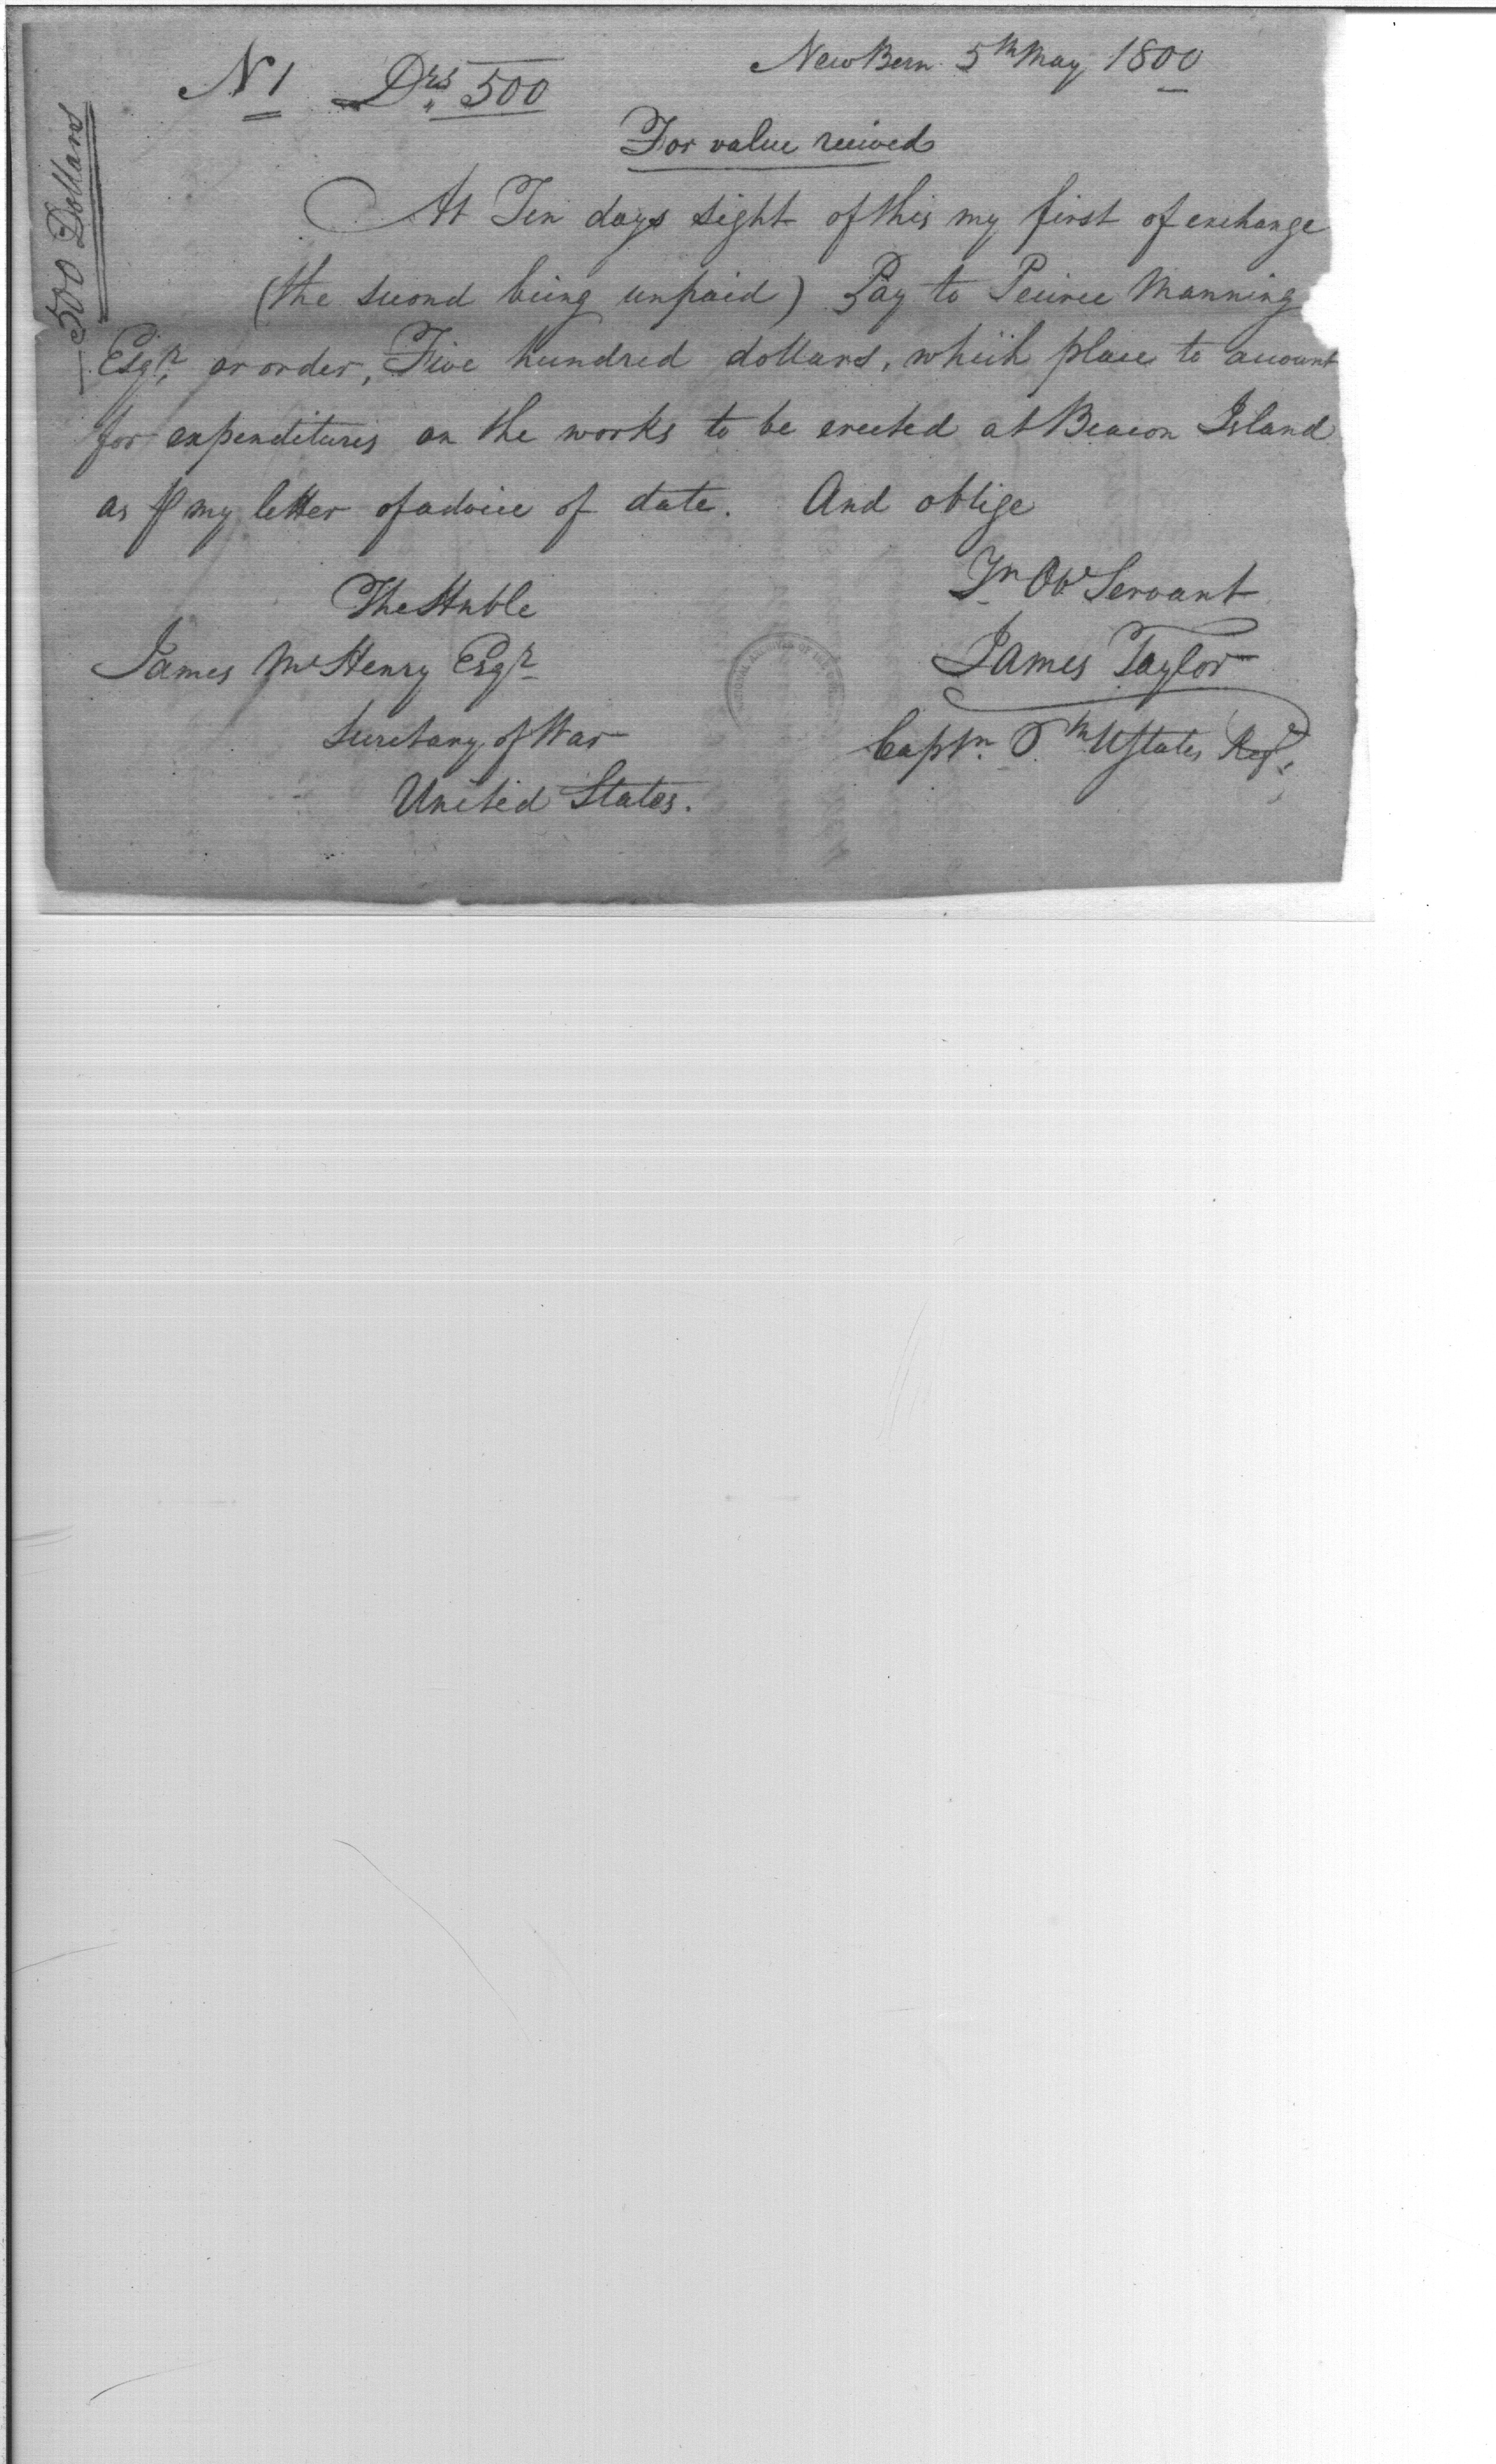 N 1 Drs 500 New Bern 5th May 1800
500 Dollars
For value received
At Ten days sight of this my first of exchange
(the second being unpaid) Pay to Peirce Manning
Esqr. or order, Five hundred dollars, which place to account
for expenditures on the works to be erected at Beacon Island
as ⅌ my letter of advice of date. And oblige
Yr Ob Servant
The Hnble
James McHenry Esqr
James Taylor
Secretary of War
Captn. th UStates Regt.
United States.